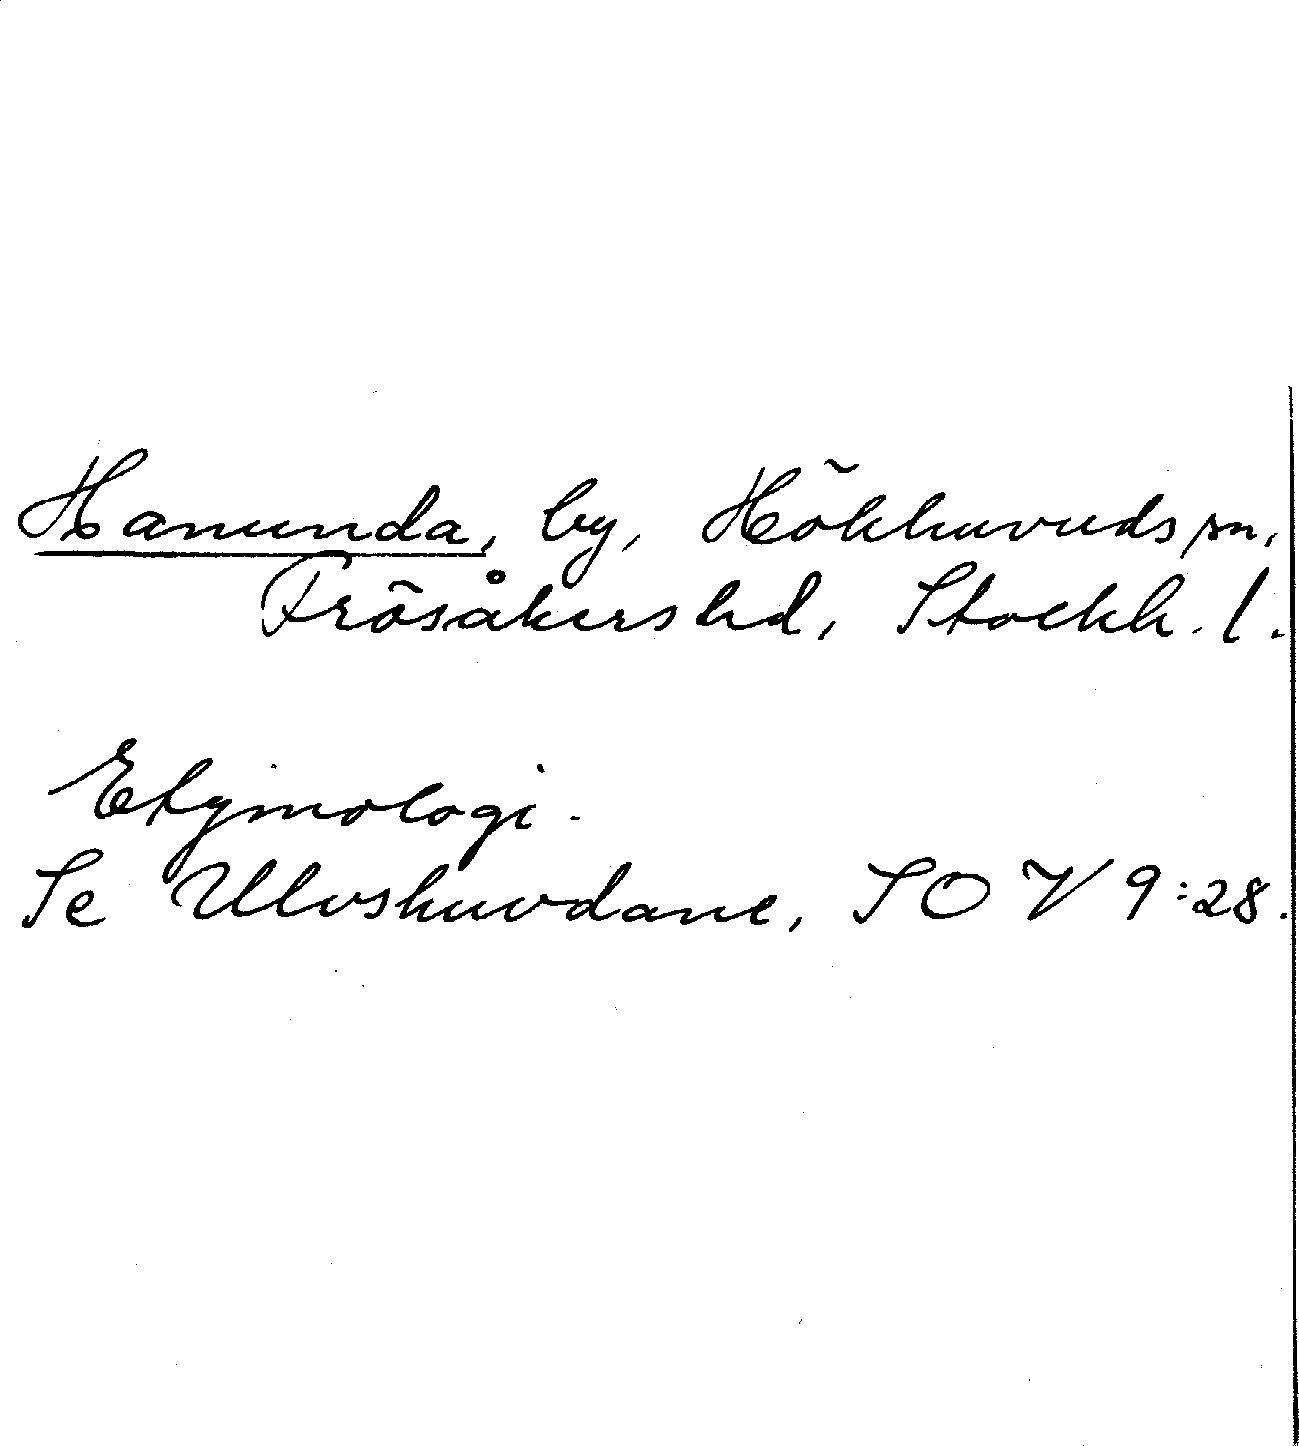 Hanunda, by, Hökhuvuds sn,
Frösåkers hd, Stockh. l.
Etymologi.
Se Ulvshuvdane, SOV 9:28.